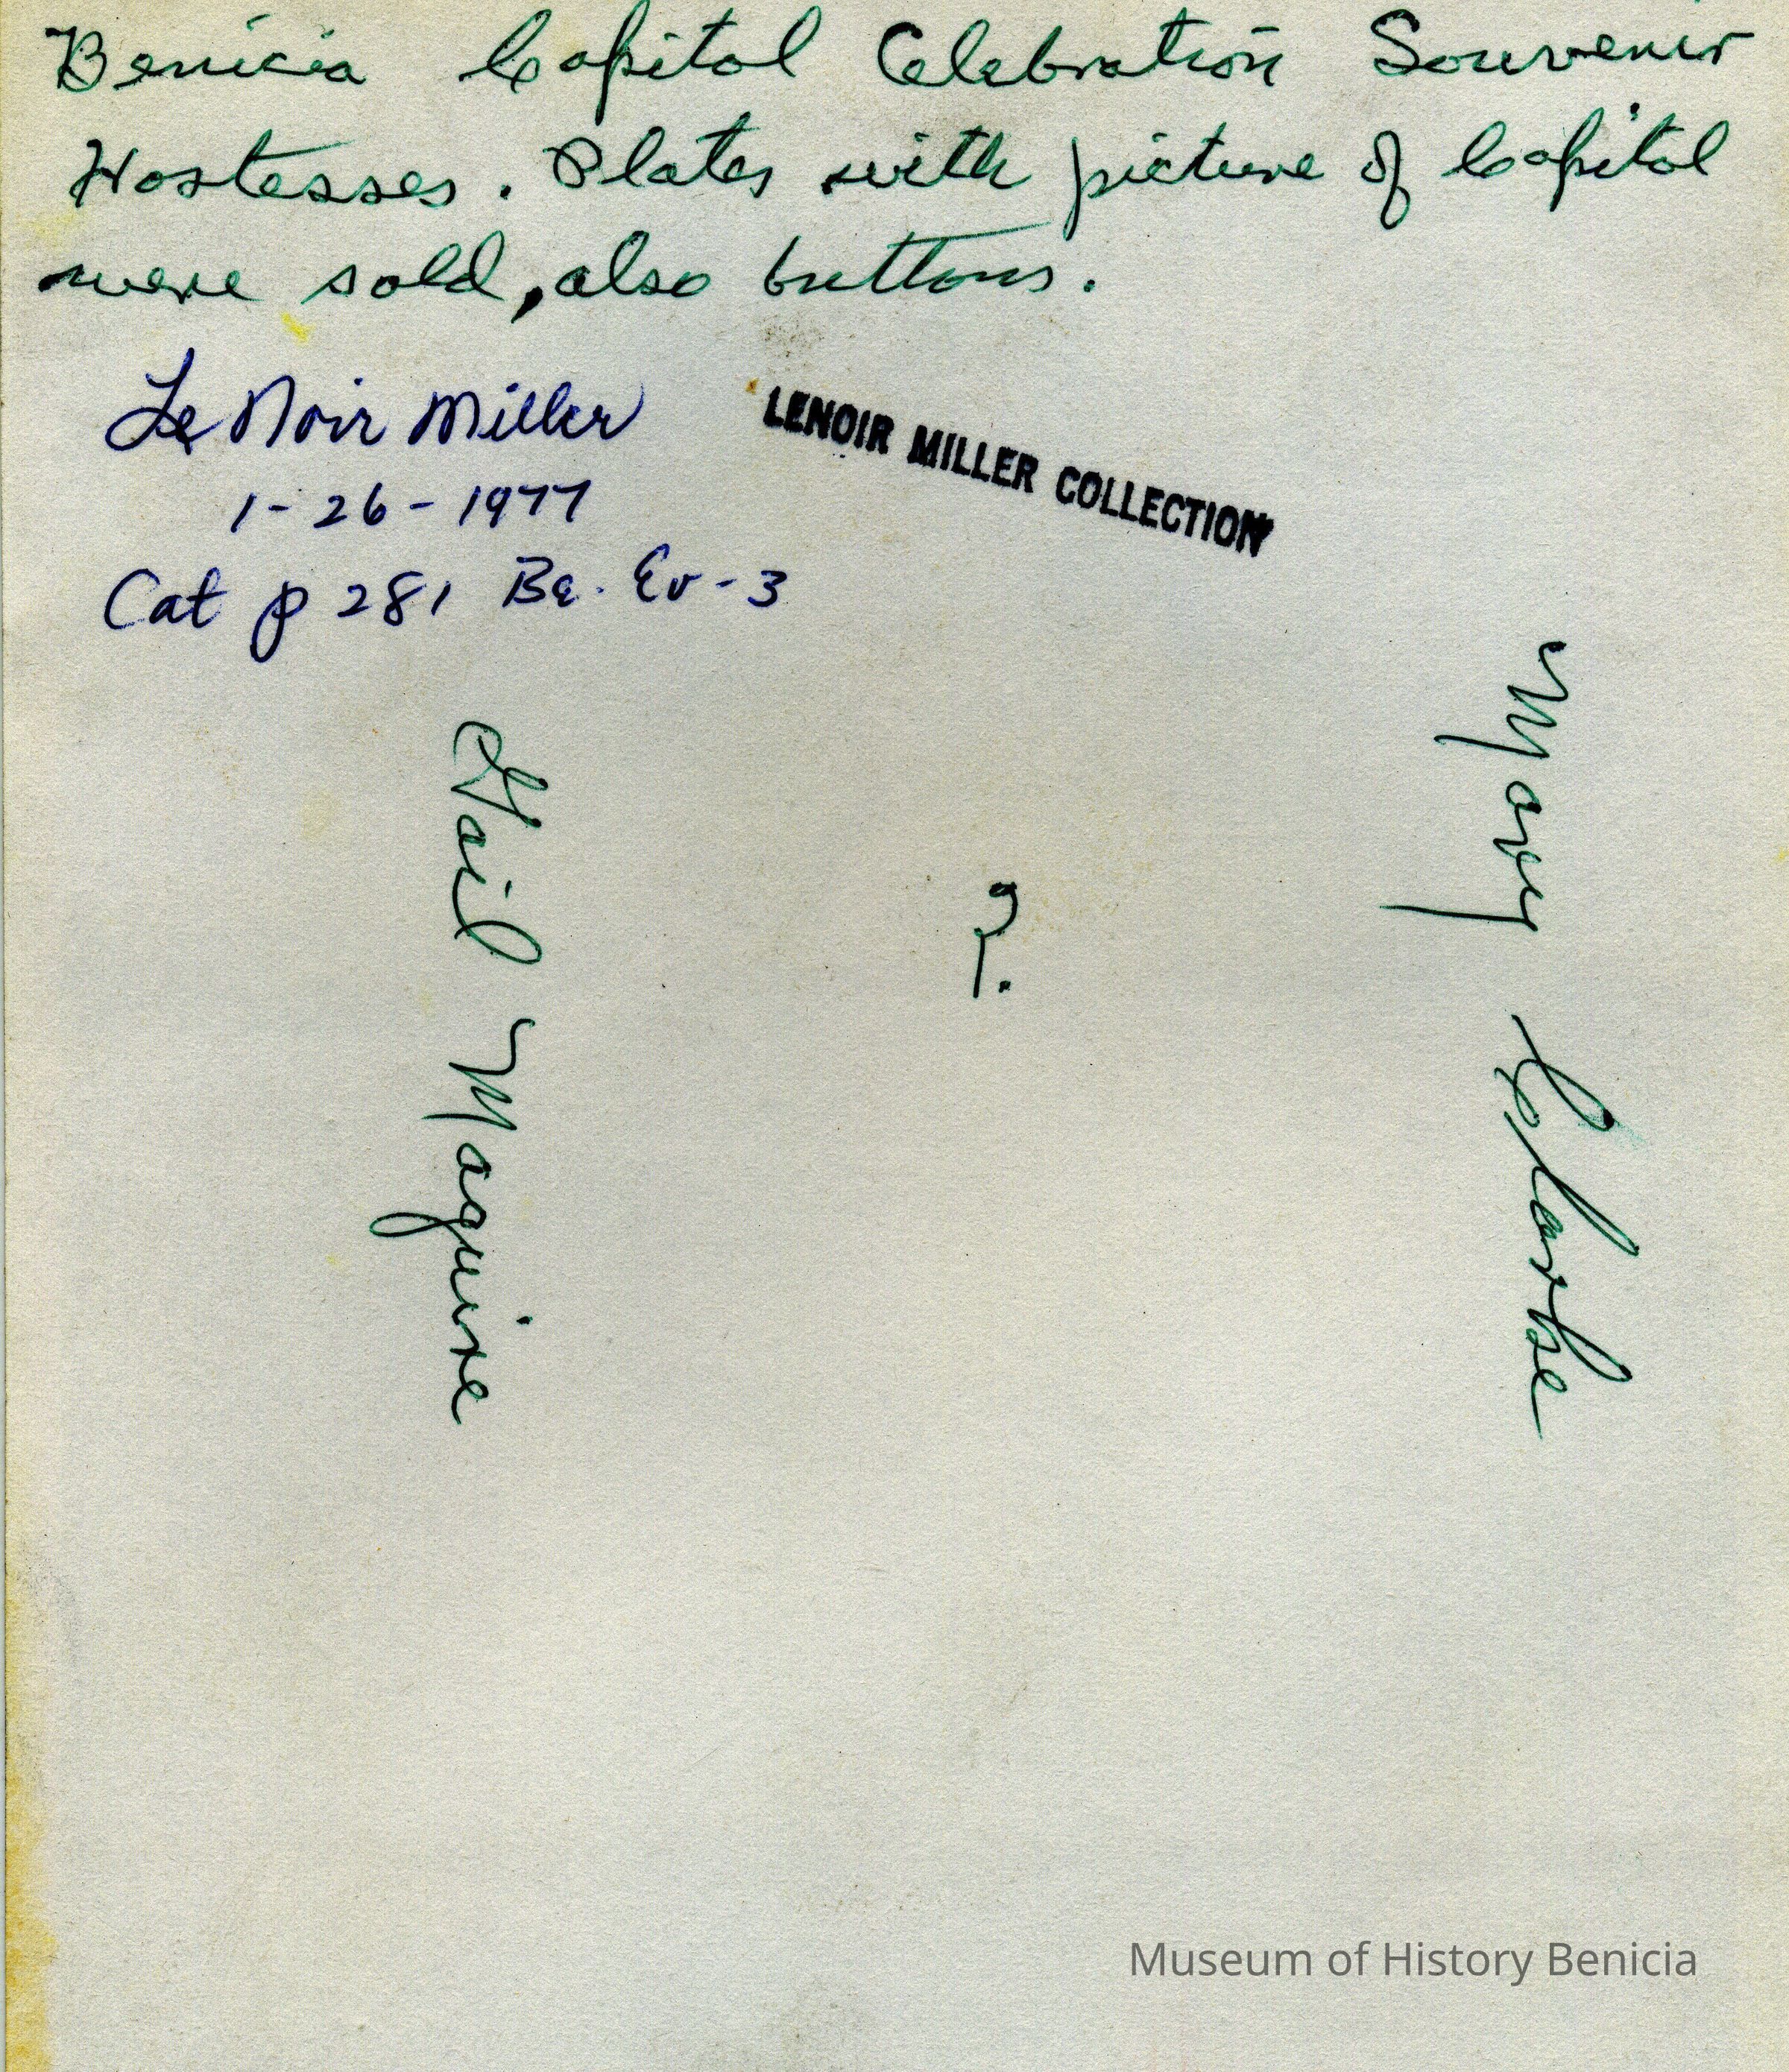 Benicia Capitol Celebration Souvenir
Hostesses. Plates with picture of Capitol
were sold, also buttons.
LeNoir Miller
1-26-1977
Cat p 281 Be. Ev-3
LENOIR MILLER COLLECTION
Gail Maguire
?
Mary Clarke
Museum of History Benicia